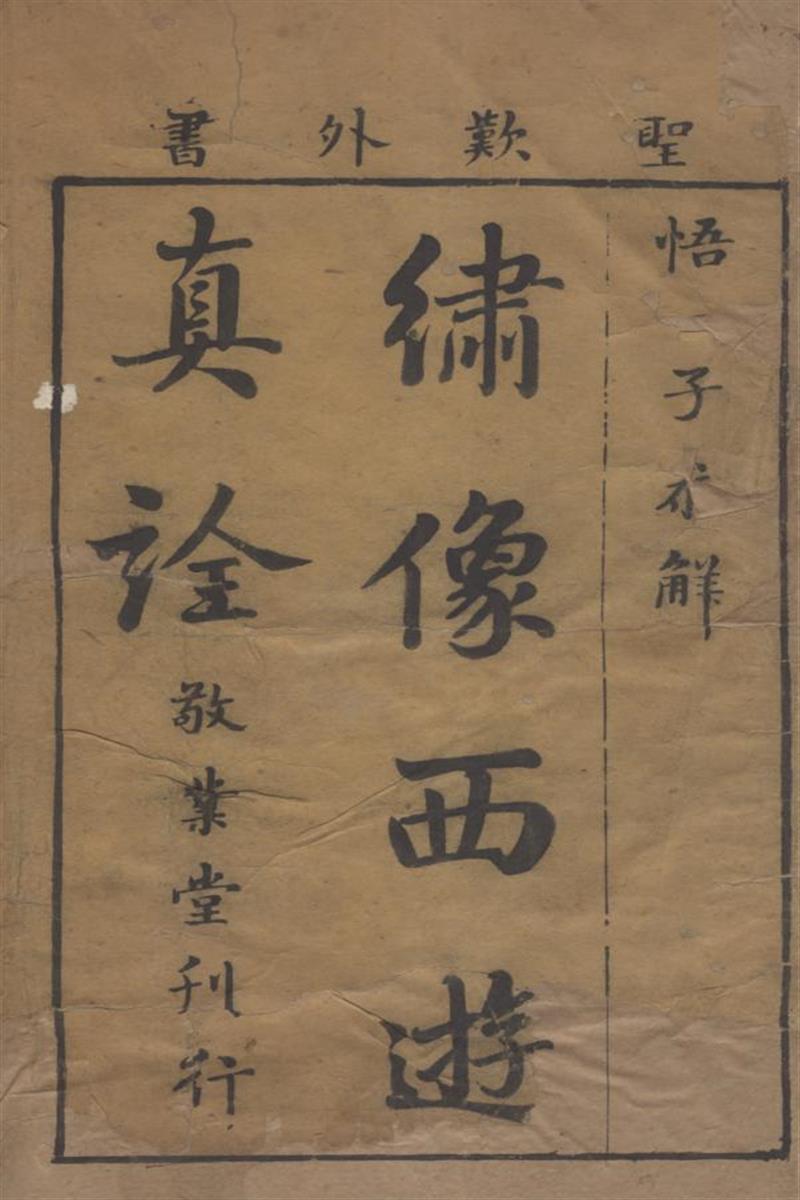 聖歎外書
悟子解
繡像西遊
真詮
敬業堂刊行